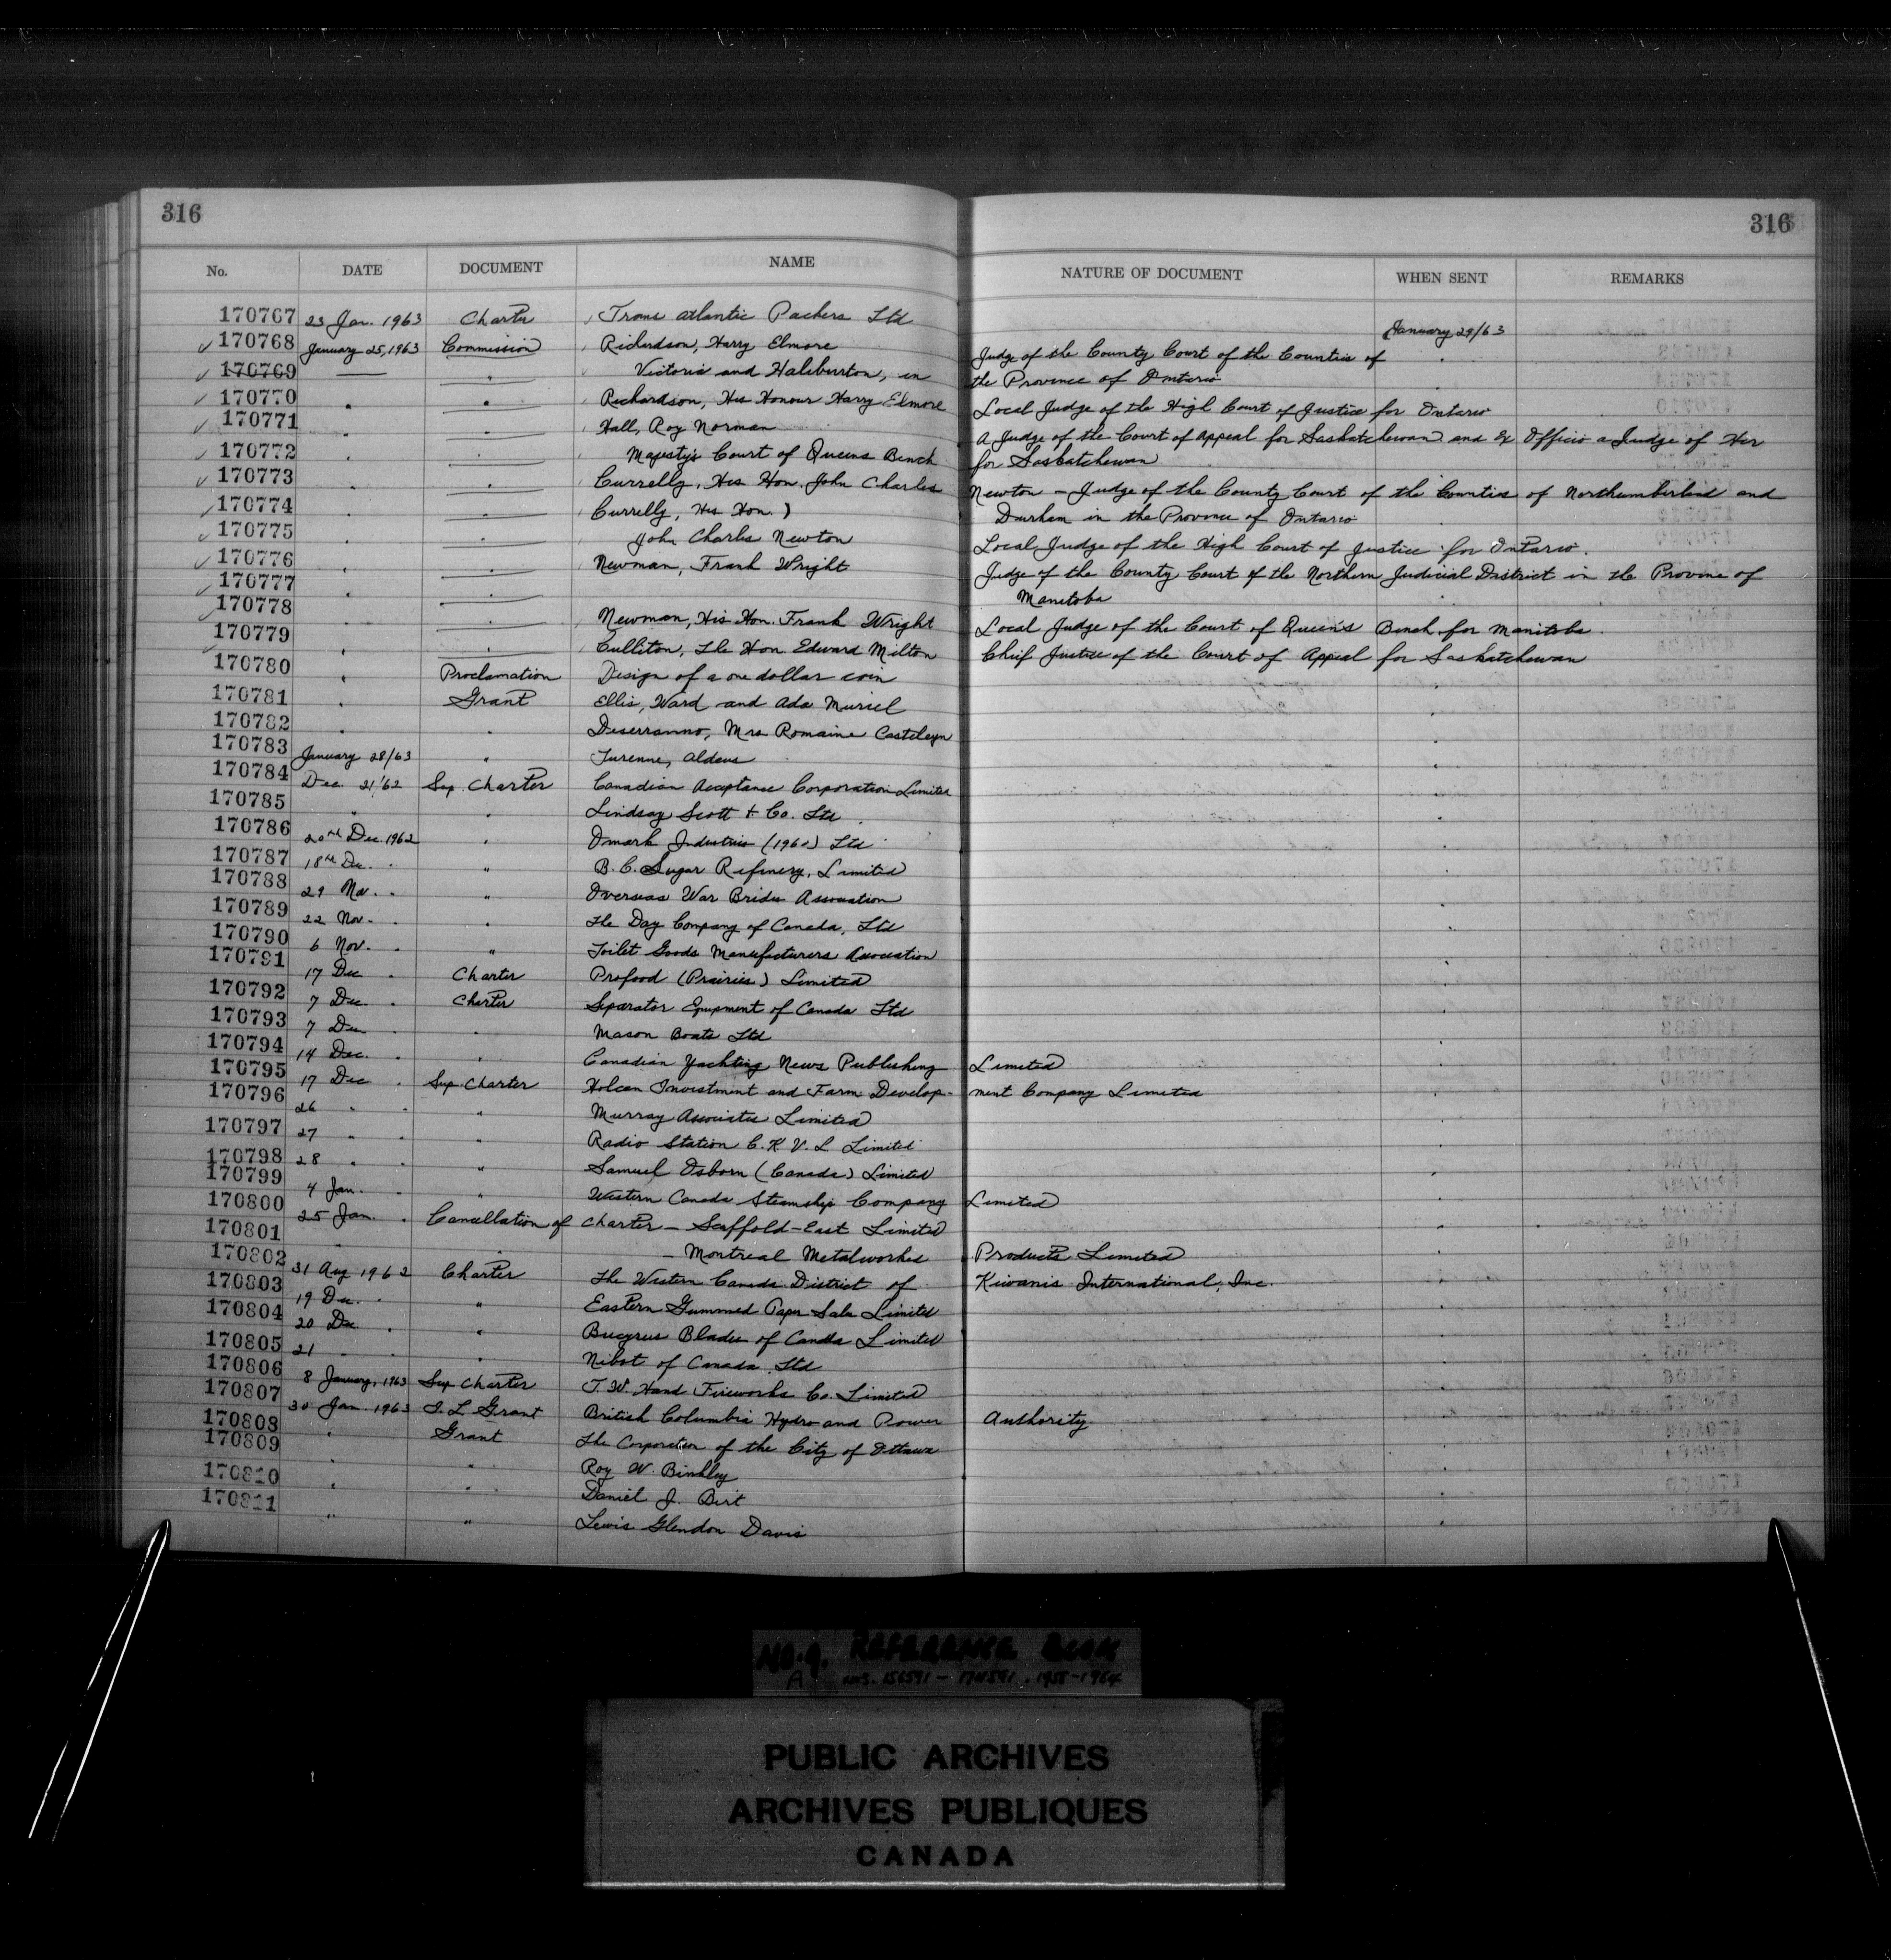 316 316
No. DATE DOCUMENT NAME NATURE OF DOCUMENT WHEN SENT REMARKS
170767 23 Jan. 1963 Charter Trans Atlantic Packers Ltd January 29/63
170768 January 25, 1963 Commission Richardson, Harry Elmore Judge of the County Court of the Counties of
170769 " Victoria and Haliburton, in the Province of Ontario
170770 " " Richardson, His Honour Harry Elmore Local Judge of the High Court of Justice for Ontario
170771 " " Hall, Roy Norman A Judge of the Court of Appeal for Saskatchewan and Ex Officio a Judge of Her
170772 " " Majesty's Court of Queens Bench for Saskatchewan
170773 " " Currelly, His Hon. John Charles Newton - Judge of the County Court of the Counties of Northumberland and
170774 " " Currelly, His Hon. ) Durham in the Province of Ontario
170775 " " John Charles Newton Local Judge of the High Court of Justice for Ontario.
170776 " " Newman, Frank Wright Judge of the County Court of the Northern Judicial District in the Province of
170777 " " Manitoba
170778 " Newman, His Hon. Frank Wright Local Judge of the Court of Queen's Bench for Manitoba.
170779 " " Culliton, The Hon Edward Milton Chief Justice of the Court of Appeal for Saskatchewan
170780 " Proclamation Design of a one dollar coin
170781 " Grant Ellis, Ward and Ada Muriel
170782 " " Deserranno, Mrs Romaine Casteleyn
170783 January 28/63 " Turenne, Aldeus
170784 Dec. 21/62 Sup. Charter Canadian Acceptance Corporation Limited
170785 " " Lindsay Scott & Co. Ltd.
170786 20th Dec. 1962 " Omark Industries (1960) Ltd.
170787 18th Dec. " " B.C. Sugar Refinery, Limited
170788 29 Nov. " " Overseas War Brides Association
170789 22 Nov. " " The Day Company of Canada, Ltd
170790 6 Nov. " " Toilet Goods Manufacturers Association
170791 17 Dec " Charter Profood (Prairies) Limited
170792 7 Dec. " Charter Separator Equipment of Canada Ltd
170793 7 Dec " " Mason Boats Ltd
170794 14 Dec. " " Canadian Yachting News Publishing Limited
170795 17 Dec " Sup. Charter Holcan Investment and Farm Development Company Limited
170796 26 " " " Murray Associates Limited
170797 27 " " " Radio Station C.K.V.L Limited
170798 28 " " " Samuel Osborn (Canada) Limited
170799 4 Jan. " " Western Canada Steamship Company Limited
170800 25 Jan. " Cancellation of Charter - Scaffold-East Limited
170801 " " - Montreal Metalworked Products Limited
170802 31 Aug 1962 Charter The Western Canada District of Kiwanis International, Inc.
170803 19 Dec. " " Eastern Gummed Paper Sales Limited
170804 20 Dec. " " Bucyrus Blades of Canada Limited
170805 21 " " " Nibot of Canada Ltd
170806 8 January, 1963 Sup Charter T.W. Hand Fireworks Co. Limited
170807 30 Jan. 1963 I. L Grant British Columbia Hydro and Power Authority
170808 " Grant The Corporation of the City of Ottawa
170809 " " Roy W. Binkley
170810 " " Daniel J. Birt
170811 " " Lewis Glendon Davis
NO. 9. REFERENCE BOOK
A NOS. 156591 - 174591. 1958-1964
PUBLIC ARCHIVES
ARCHIVES PUBLIQUES
CANADA